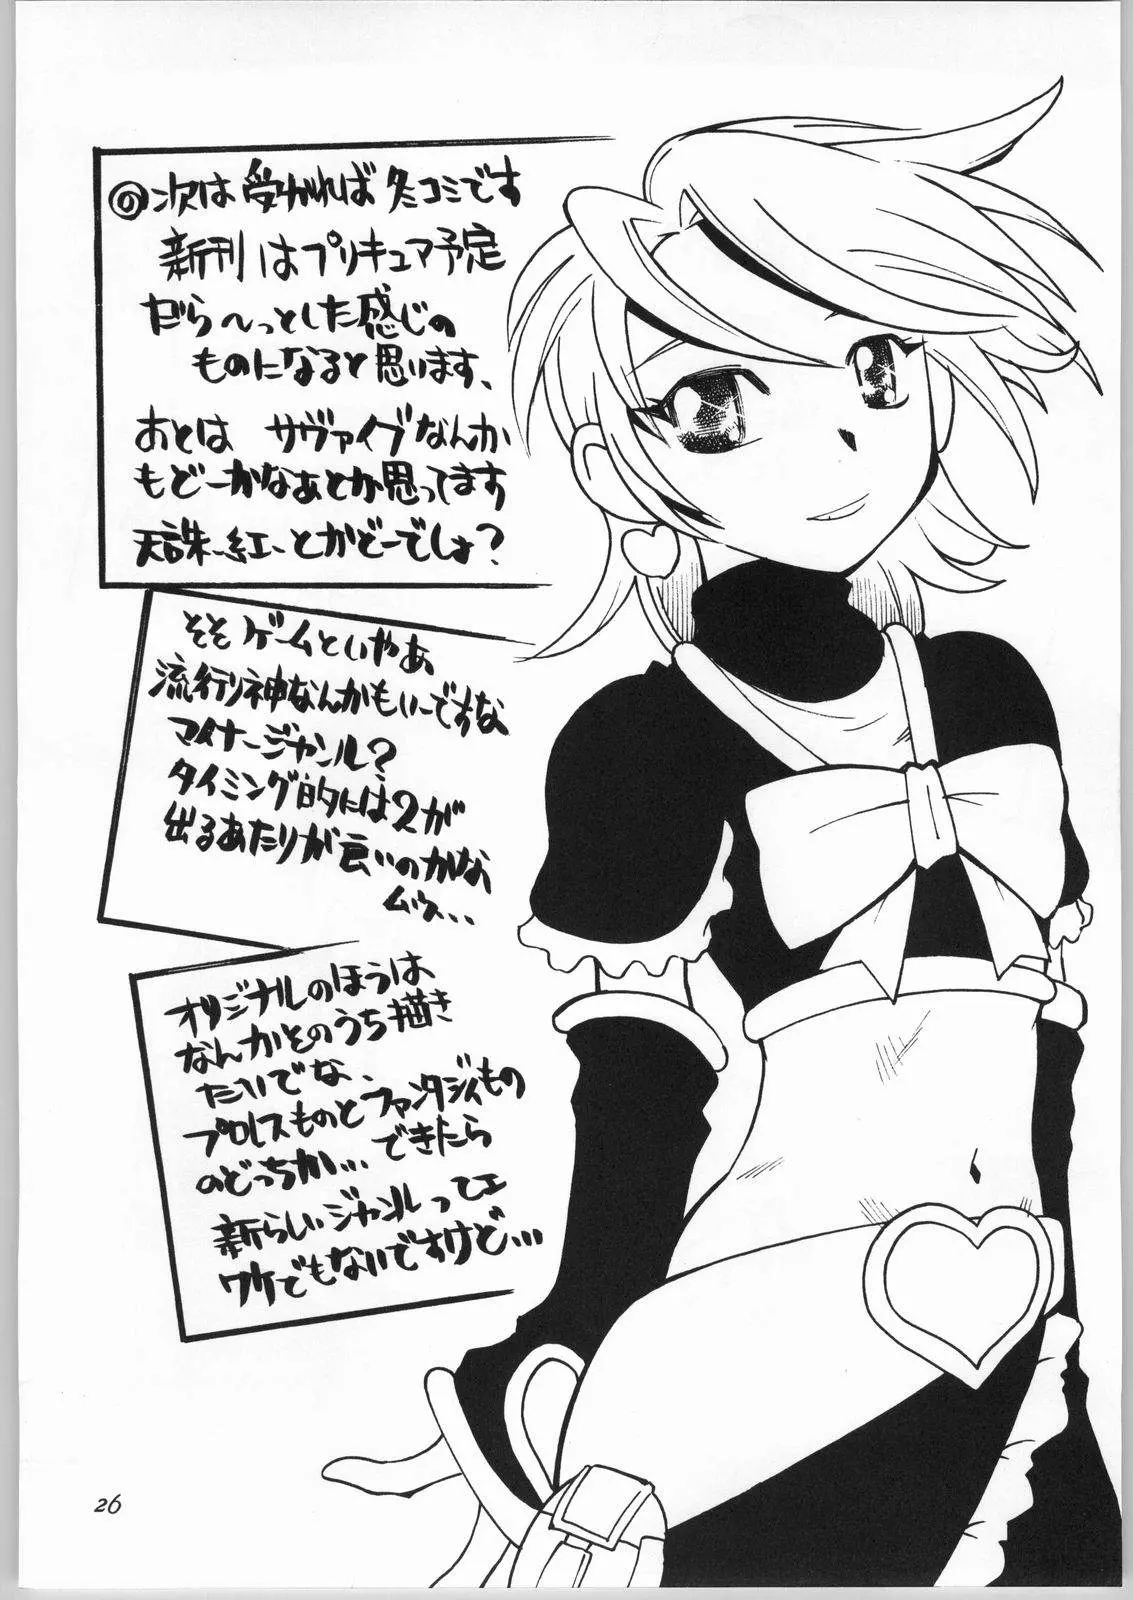 ◎次は受かれば冬コミです
新刊はプリキュア予定
だら～っとした感じの
ものになると思います、
おとは サヴァイブなんか
もどーかなあとか思ってます
天誅-紅-とかどーでしょ？
そそゲームといやあ
流行り神なんかもいーですな
マイナージャンル？
タイミング的には2が
出るあたりが良いのかな
ムウ...
オリジナルのほうは
なんかそのうち描き
たいでな、
プロレスものとファンタジィもの
のどっちか... できたら
新らしいジャンルってェ
ワケでもないですけど...
26